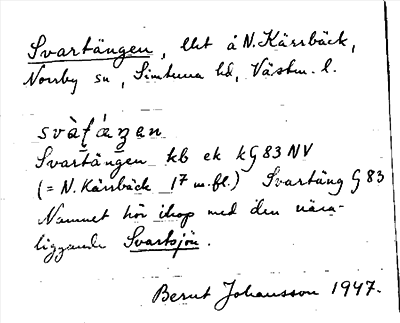 Svartängen, lht å N. Kärrbäck,
Norrby sn, Simtuna hd, Västm. l.
svàṭáŋen
Svartängen kb ek kG 83 NV
(= N. Kärrbäck 1⁷ m.fl.) Svartäng G 83
Namnet hör ihop med den nära-
liggande Svartsjön.
Bernt Johansson 1947.